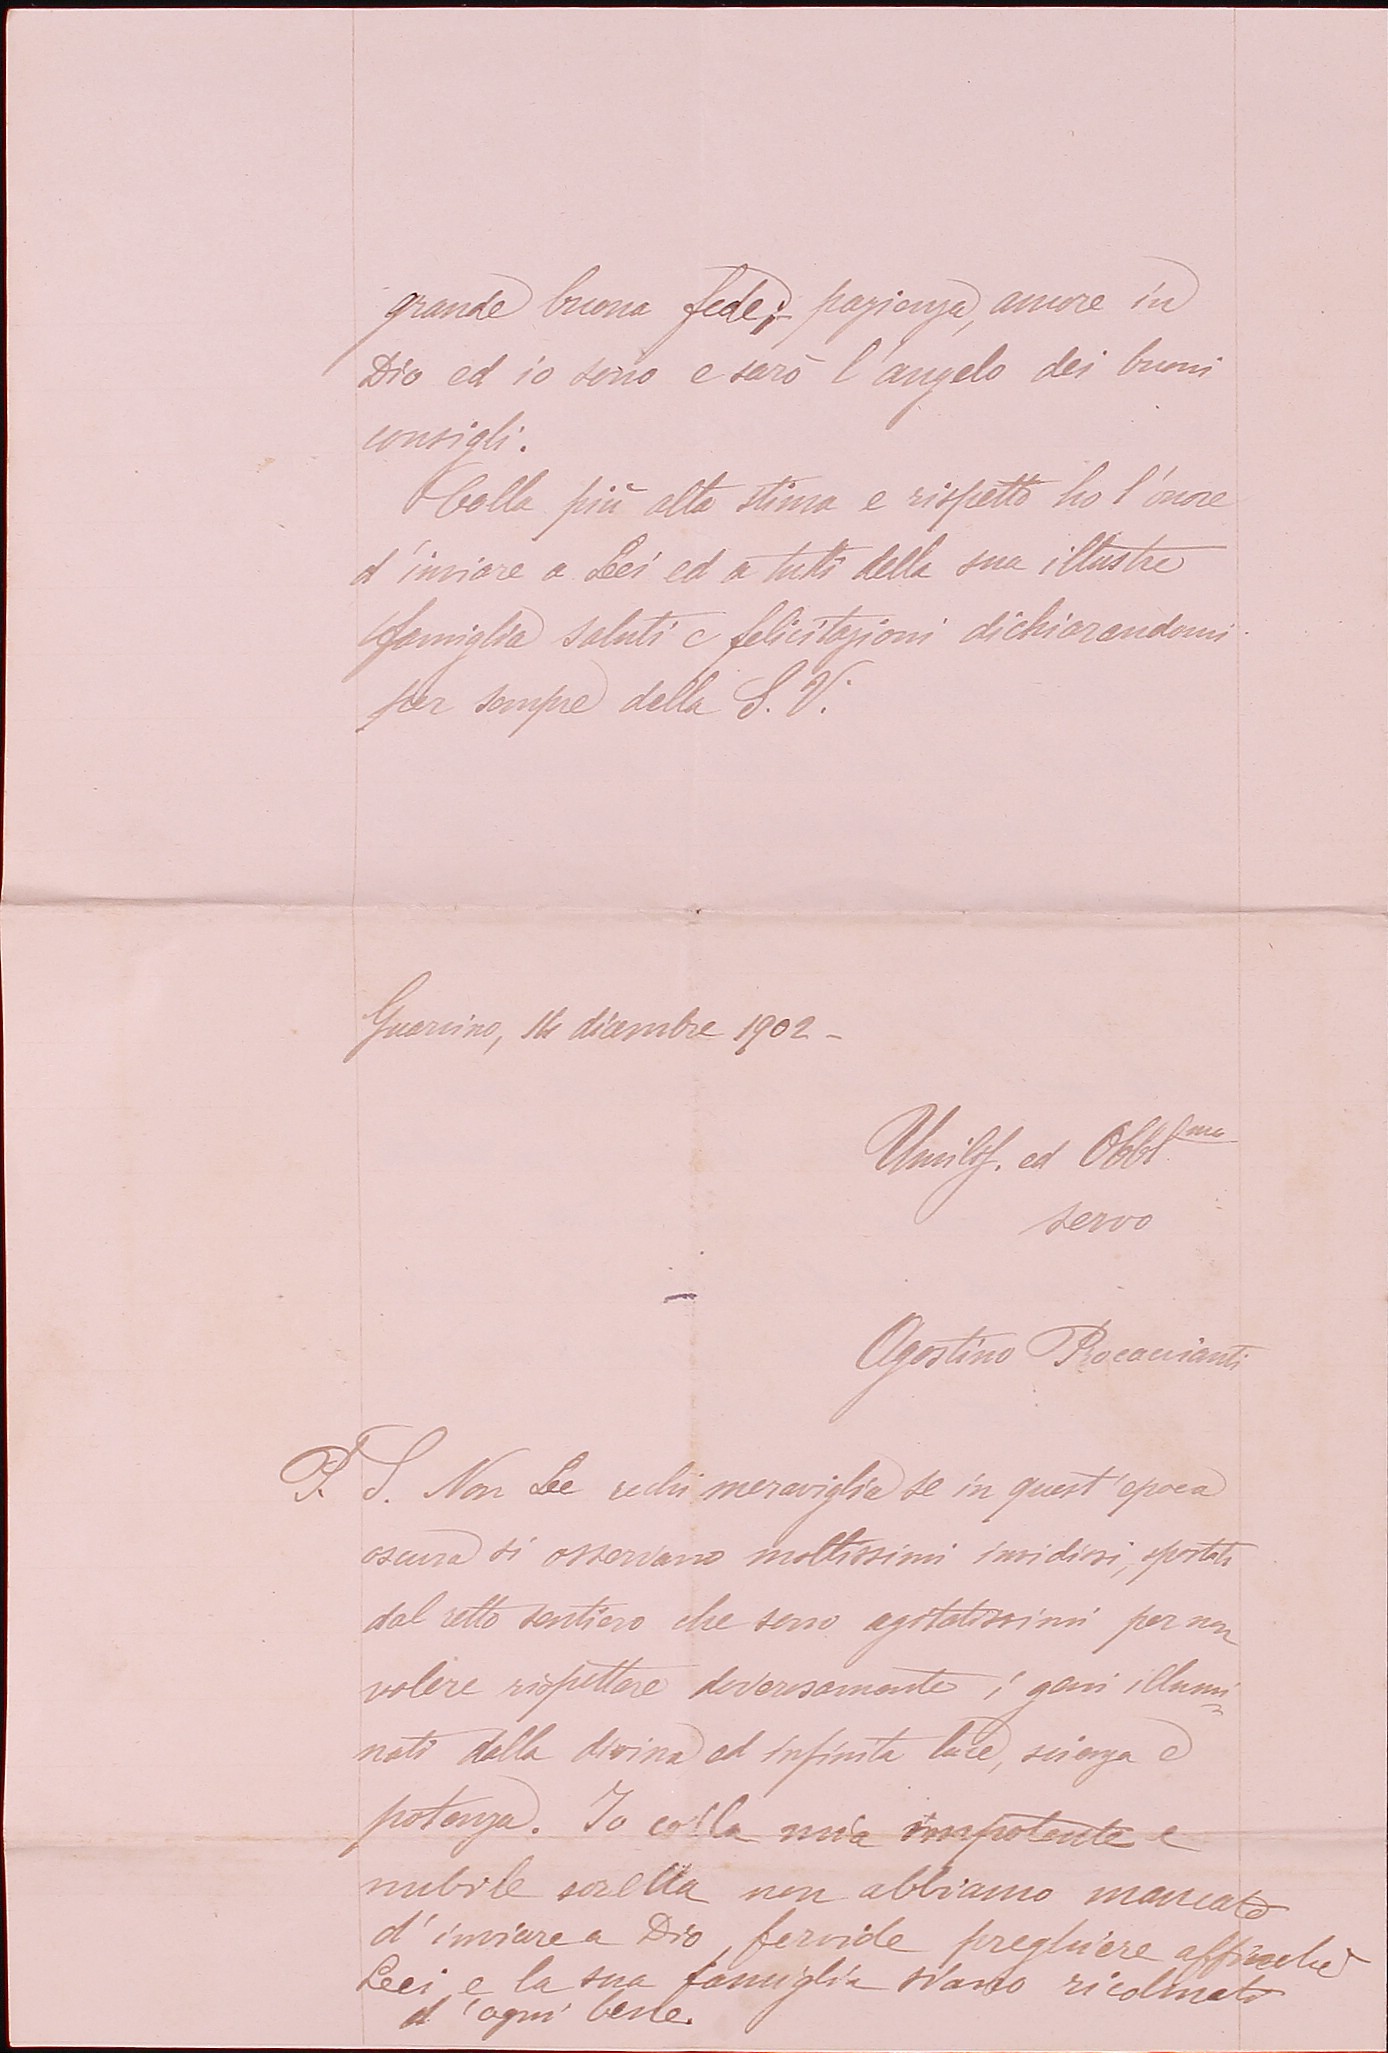 grande buona fede, pazienza, amore in
Dio ed io sono e sarò l'angelo dei buoni
consigli.
Colla più alta stima e rispetto ho l'onore
d'inviare a Lei ed a tutti della sua illustre
famiglia saluti e felicitazioni dichiarandomi
per sempre della S. V.
Guarcino, 14 dicembre 1902 -
Umilis. ed Obbl.mo
servo
Agostino Procaccianti
P. S. Non Le rechi meraviglia se in quest'epoca
oscura si osservano moltissimi invidiosi, spostati
dal retto sentiero che sono agitatissimi per non
volere rispettare doverosamente i geni illumi-
nati dalla divina ed infinita luce, scienza e
potenza. Io colla mia impotente e
nubile sorella non abbiamo mancato
d'inviare a Dio, fervide preghiere affinché
Lei e la sua famiglia siano ricolmati
d'ogni bene.